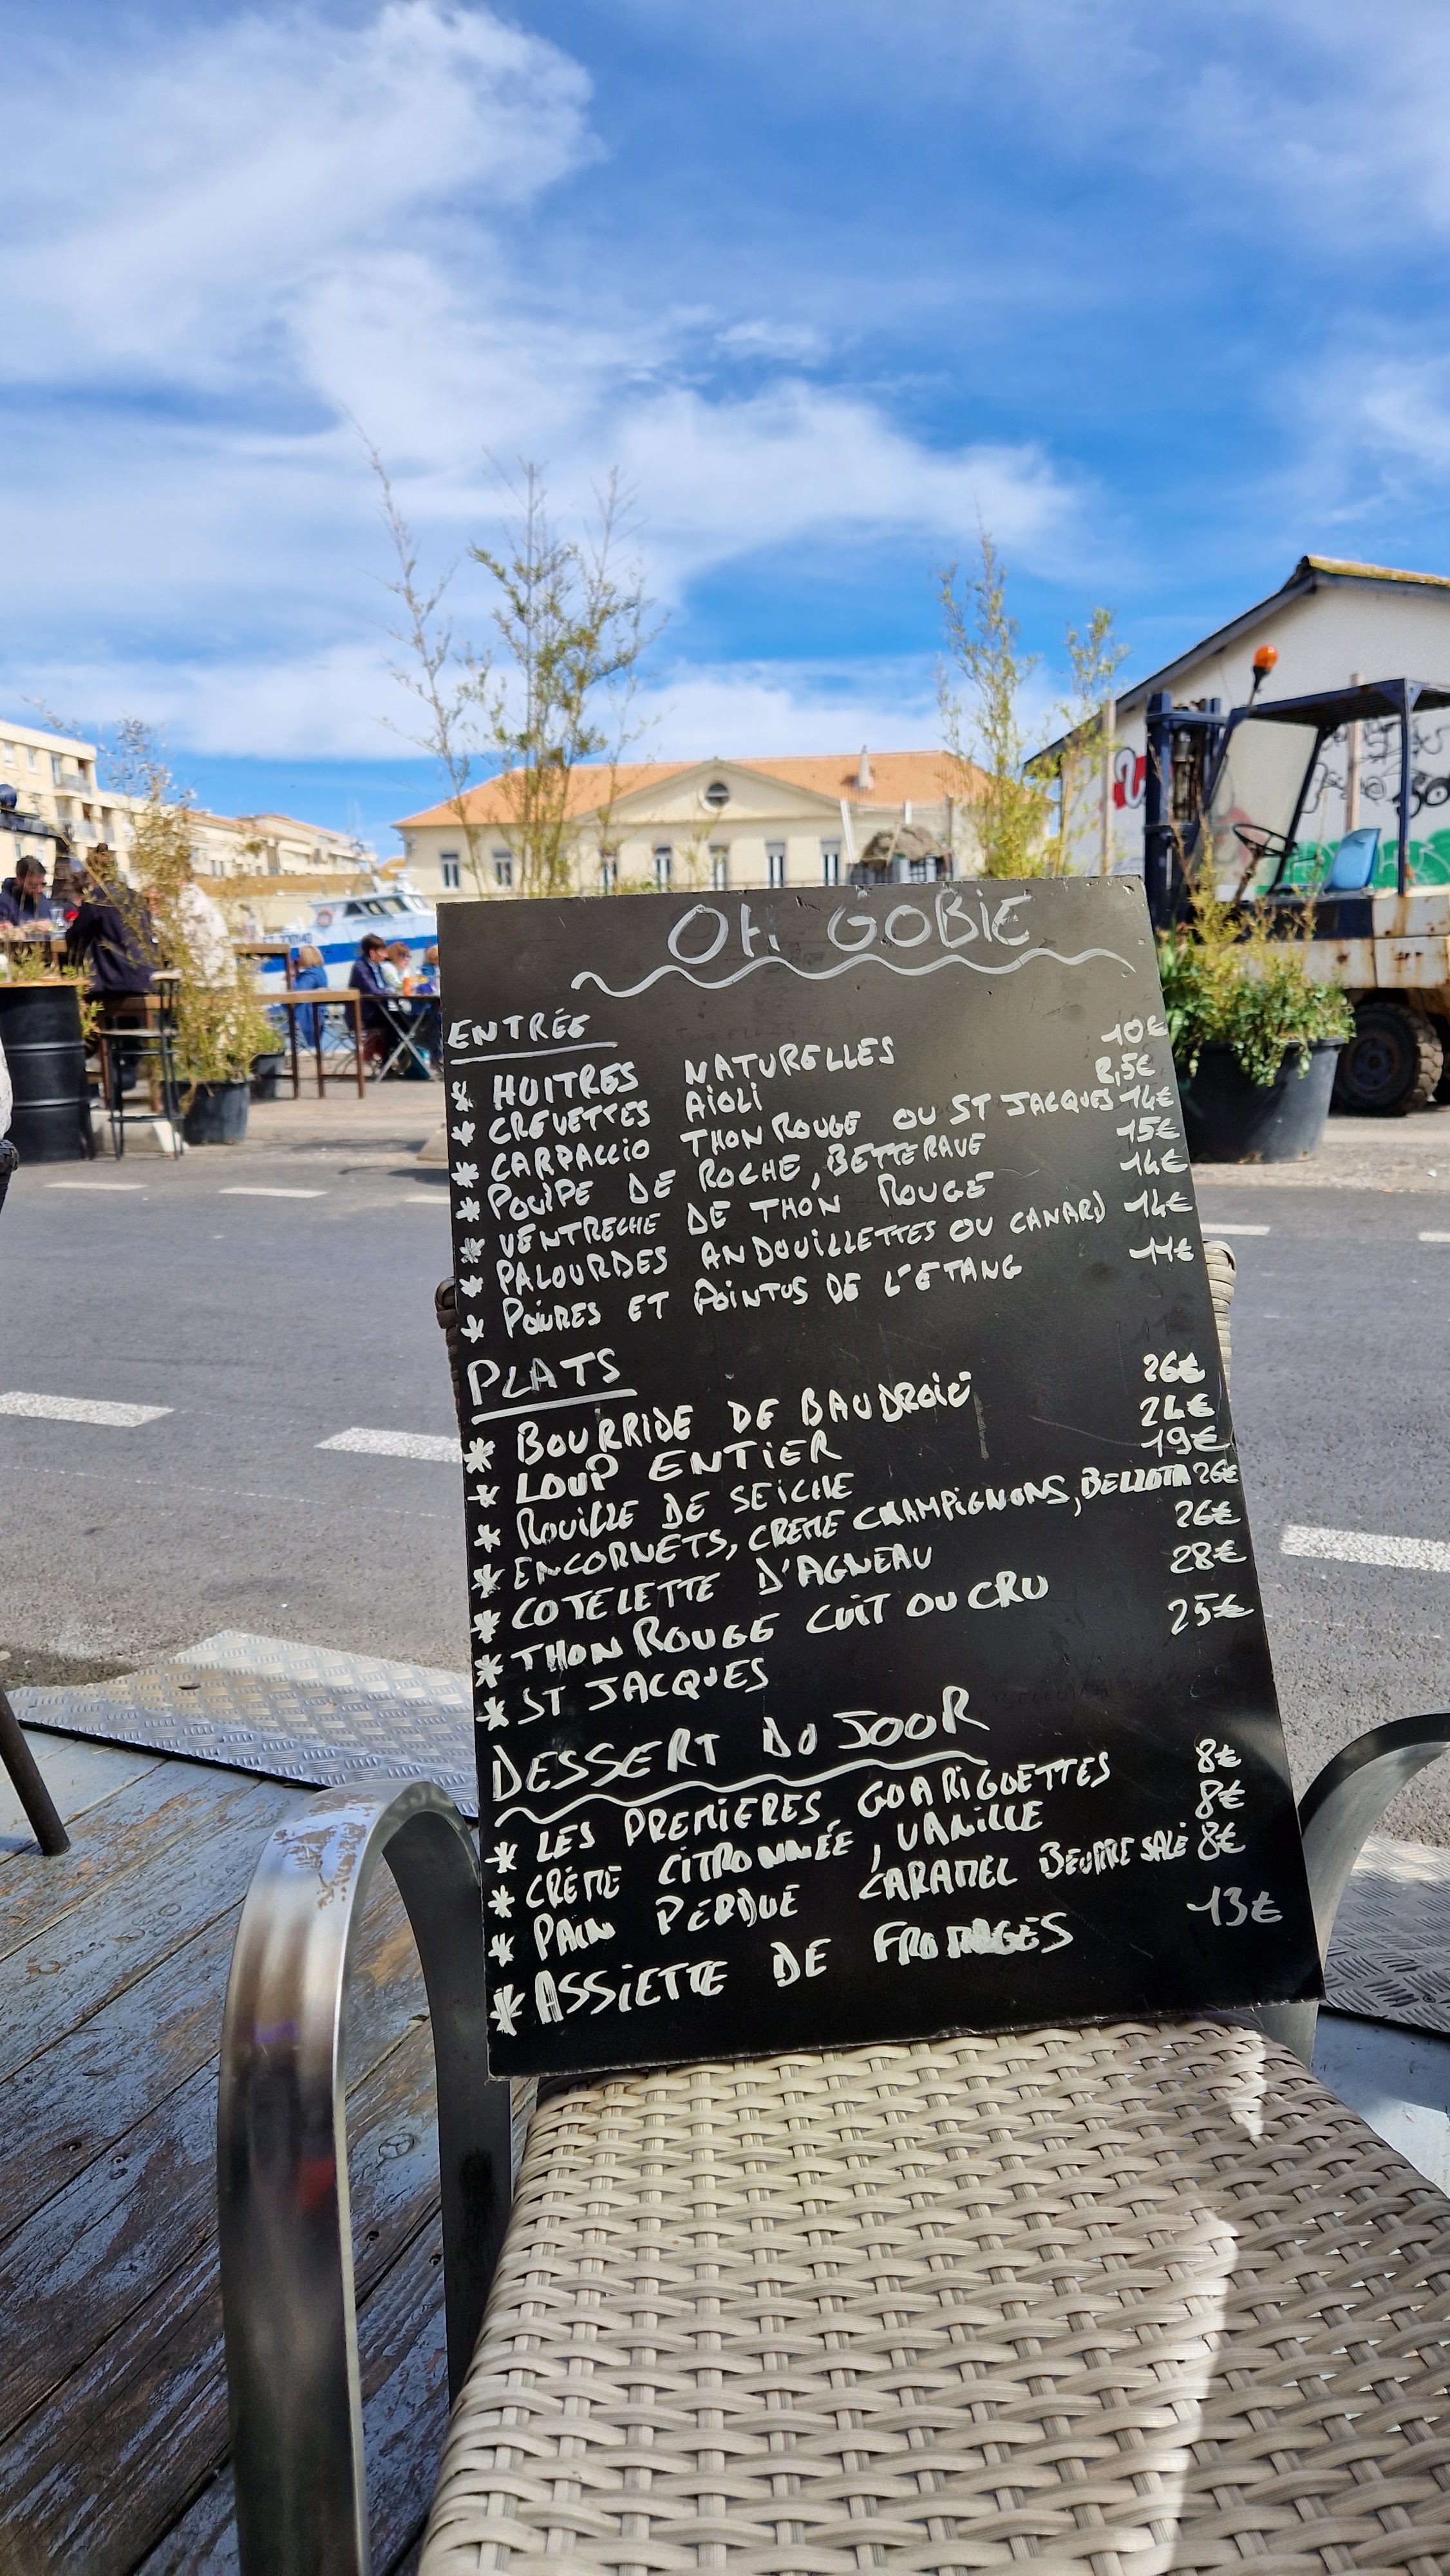 OH GOBIE
ENTRÉE
* HUITRES NATURELLES 10€
* CREVETTES AIOLI 8,5€
* CARPACCIO THON ROUGE OU ST JACQUES 14€
* POULPE DE ROCHE, BETTERAVE 15€
* VENTRECHE DE THON ROUGE 14€
* PALOURDES ANDOUILLETTES OU CANARD 14€
* POIVRES ET POINTUS DE L'ETANG 11€
PLATS
* BOURRIDE DE BAUDROIE 26€
* LOUP ENTIER 24€
* ROUILLE DE SEICHE 19€
* ENCORNETS, CREME CHAMPIGNONS, BELLOTA 26€
* COTELETTE D'AGNEAU 26€
* THON ROUGE CUIT OU CRU 28€
* ST JACQUES 25€
DESSERT DU JOUR
* LES PREMIERES GUARIGUETTES 8€
* CRÈME CITRONNÉE, VANILLE 8€
* PAIN PERDUE CARAMEL BEURRE SALÉ 8€
* ASSIETTE DE FROMAGES 13€